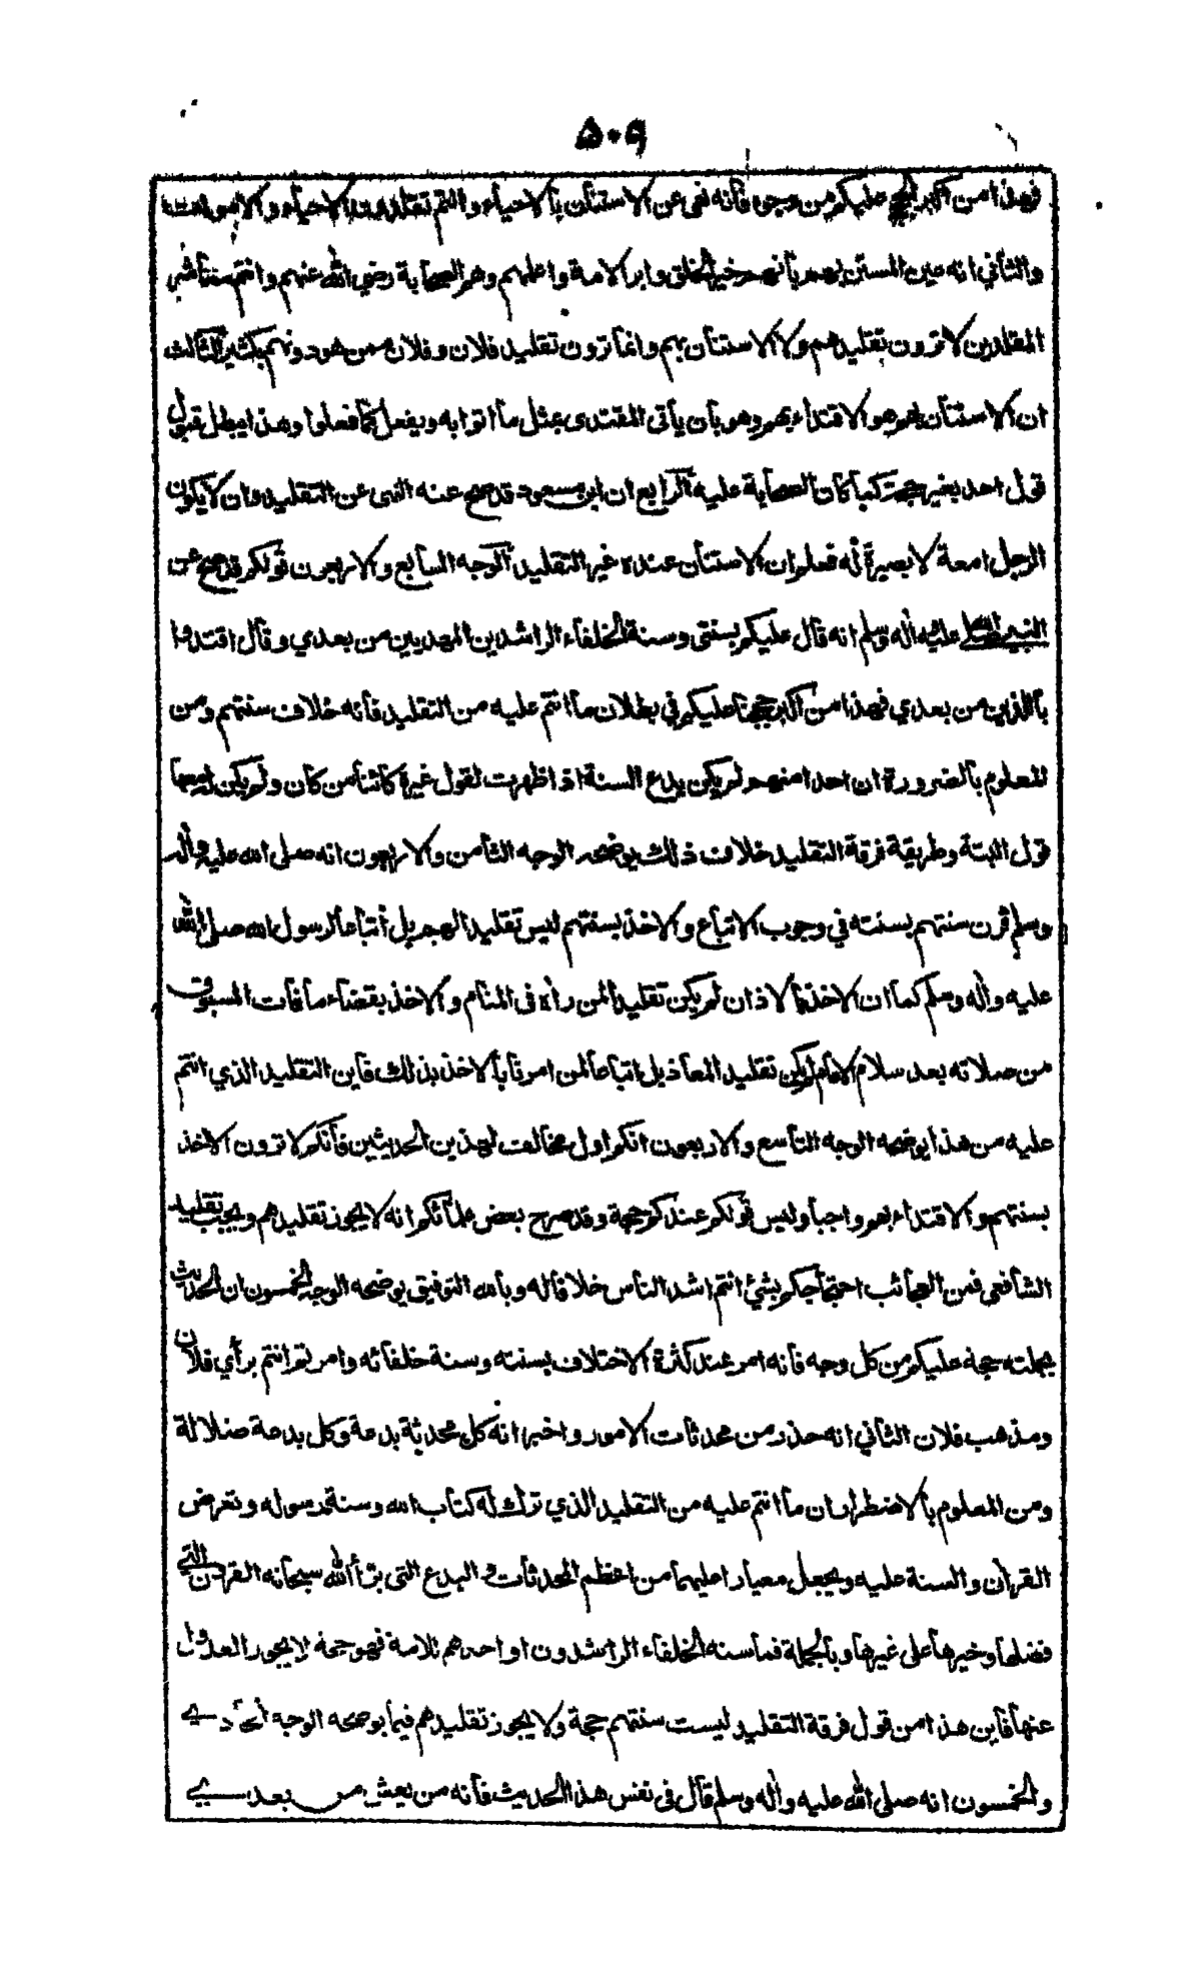 ۵۰۹
فهذا من اكبر الحجج عليكم من وجوه فأنه نهى عن الاستنان بالاحياء وانتم تقلدون الاحياء والاموات
والثاني انه عين المستن بهم بأنهم خير الخلق وابر الامة واعلمهم وهم الصحابة رضي الله عنهم وانتم معاشر
المقلدين لا ترون تقليدهم ولا الاستنان بهم وانما ترون تقليد فلان وفلان ممن هو دونهم بكثير الثالث
ان الاستنان بهم هو الاقتداء بهم وهو بان يأتى المقتدى بمثل ما اتوا به ويفعل كما فعلوا وهذا يبطل قبول
قول احد بغير حجة كما كان الصحابة عليه الرابع ان ابن مسعود قد صح عنه النهى عن التقليد وان لا يكون
الرجل امعة لا بصيرة له فعلم ان الاستنان عنده غير التقليد الوجه السابع والاربعون قولكم قد صح عن
النبي صلى الله عليه وأله وسلم انه قال عليكم بسنتى وسنة الخلفاء الراشدين المهديين من بعدي وقال اقتدوا
بالذين من بعدي فهذا من اكبر حججنا عليكم في بطلان ما انتم عليه من التقليد فأنه خلاف سنتهم ومن
المعلوم بالضرورة ان احدا منهم لم يكن يدع السنة اذا ظهرت لقول غيره كائنا من كان ولم يكن له معها
قول البتة وطريقة فرقة التقليد خلاف ذلك يوضحه الوجه الثامن والاربعون انه صلى الله عليه وأله
وسلم قرن سنتهم بسنته في وجوب الاتباع والاخذ بسنتهم ليس تقليدا لهم بل اتباعا لرسول الله صلى الله
عليه وأله وسلم كما ان الاخذ بالاذان لم يكن تقليدا لمن رأه فى المنام والاخذ بقضاء ما فات المسبوق
من صلاته بعد سلام الامام لم يكن تقليدا لمعاذ بل اتباعا لمن امرنا بالاخذ بذلك فأين التقليد الذي انتم
عليه من هذا يوضحه الوجه التاسع والاربعون انكم اول مخالف لهذين الحديثين فأنكم لا ترون الاخذ
بسنتهم والاقتداء بهم واجبا وليس قولكم عندكم حجة وقد صرح بعض علمائكم انه لا يجوز تقليدهم ويجب تقليد
الشافعى فمن العجائب احتجاجكم بشئ انتم اشد الناس خلافا له وبالله التوفيق يوضحه الوجه الخمسون ان الحديث
بجملته حجة عليكم من كل وجه فأنه امر عند كثرة الاختلاف بسنته وسنة خلفائه وامرتم انتم برأي فلان
ومذهب فلان الثاني انه حذر من محدثات الامور واخبر انه كل محدثة بدعة وكل بدعة ضلالة
ومن المعلوم بالاضطرار ان ما انتم عليه من التقليد الذي ترك له كتاب الله وسنة رسوله وتعرض
القرأن والسنة عليه ويجعل معيارا عليهما من اعظم المحدثات والبدع التى برأ الله سبحانه القرون التي
فضلها وخيرها على غيرها وبالجملة فما سنه الخلفاء الراشدون او احدهم للامة فهو حجة لا يجوز العدول
عنها فأين هذا من قول فرقة التقليد ليست سنتهم حجة ولا يجوز تقليدهم فيها يوضحه الوجه الحادي
والخمسون انه صلى الله عليه وأله وسلم قال فى نفس هذا الحديث فأنه من يعش من بعدي